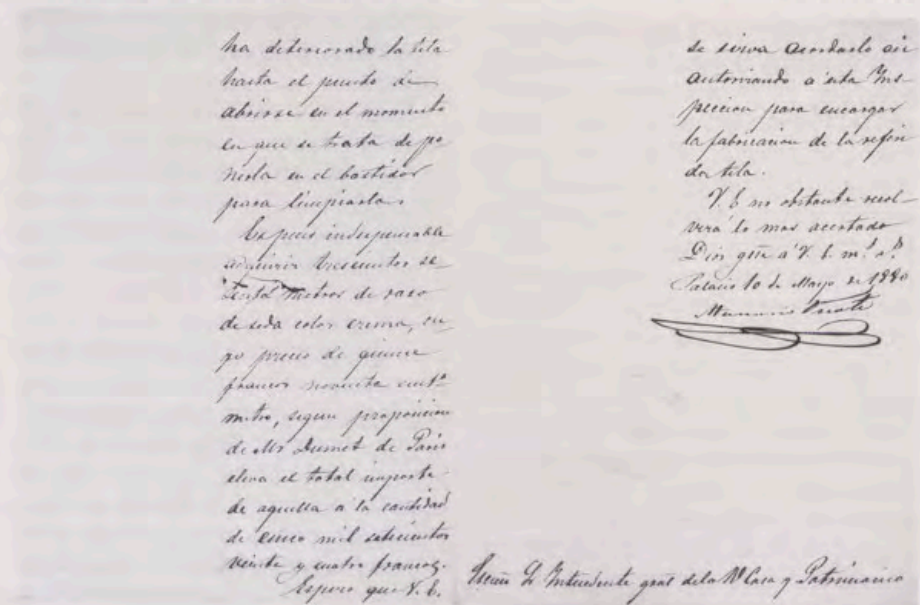 ha deteriorado la tela
hasta el punto de
abrirse en el momento
en que se trata de po
nerla en el bastidor
para limpiarla.
Es pues indispensable
adquirir trescientos se-
senta metros de raso
de seda color crema, cu
yo precio de quince
francos noventa cent.s
metro, segun proposicion
de Mr Dumet de Paris
eleva el total importe
de aquella á la cantidad
de cinco mil setecientos
veinte y cuatro francos.
Espero que V. E.
se sirva acordarlo asi
autorizando á esta Ins-
peccion para encargar
la fabricacion de la referi
da tela.
V. E no obstante resol-
verá lo mas acertado
Dios gue á V. E. m.s a.s
Palacio 10 de Mayo de 1880
Señor D. Intendente gral de la Rl Casa y Patrimonio